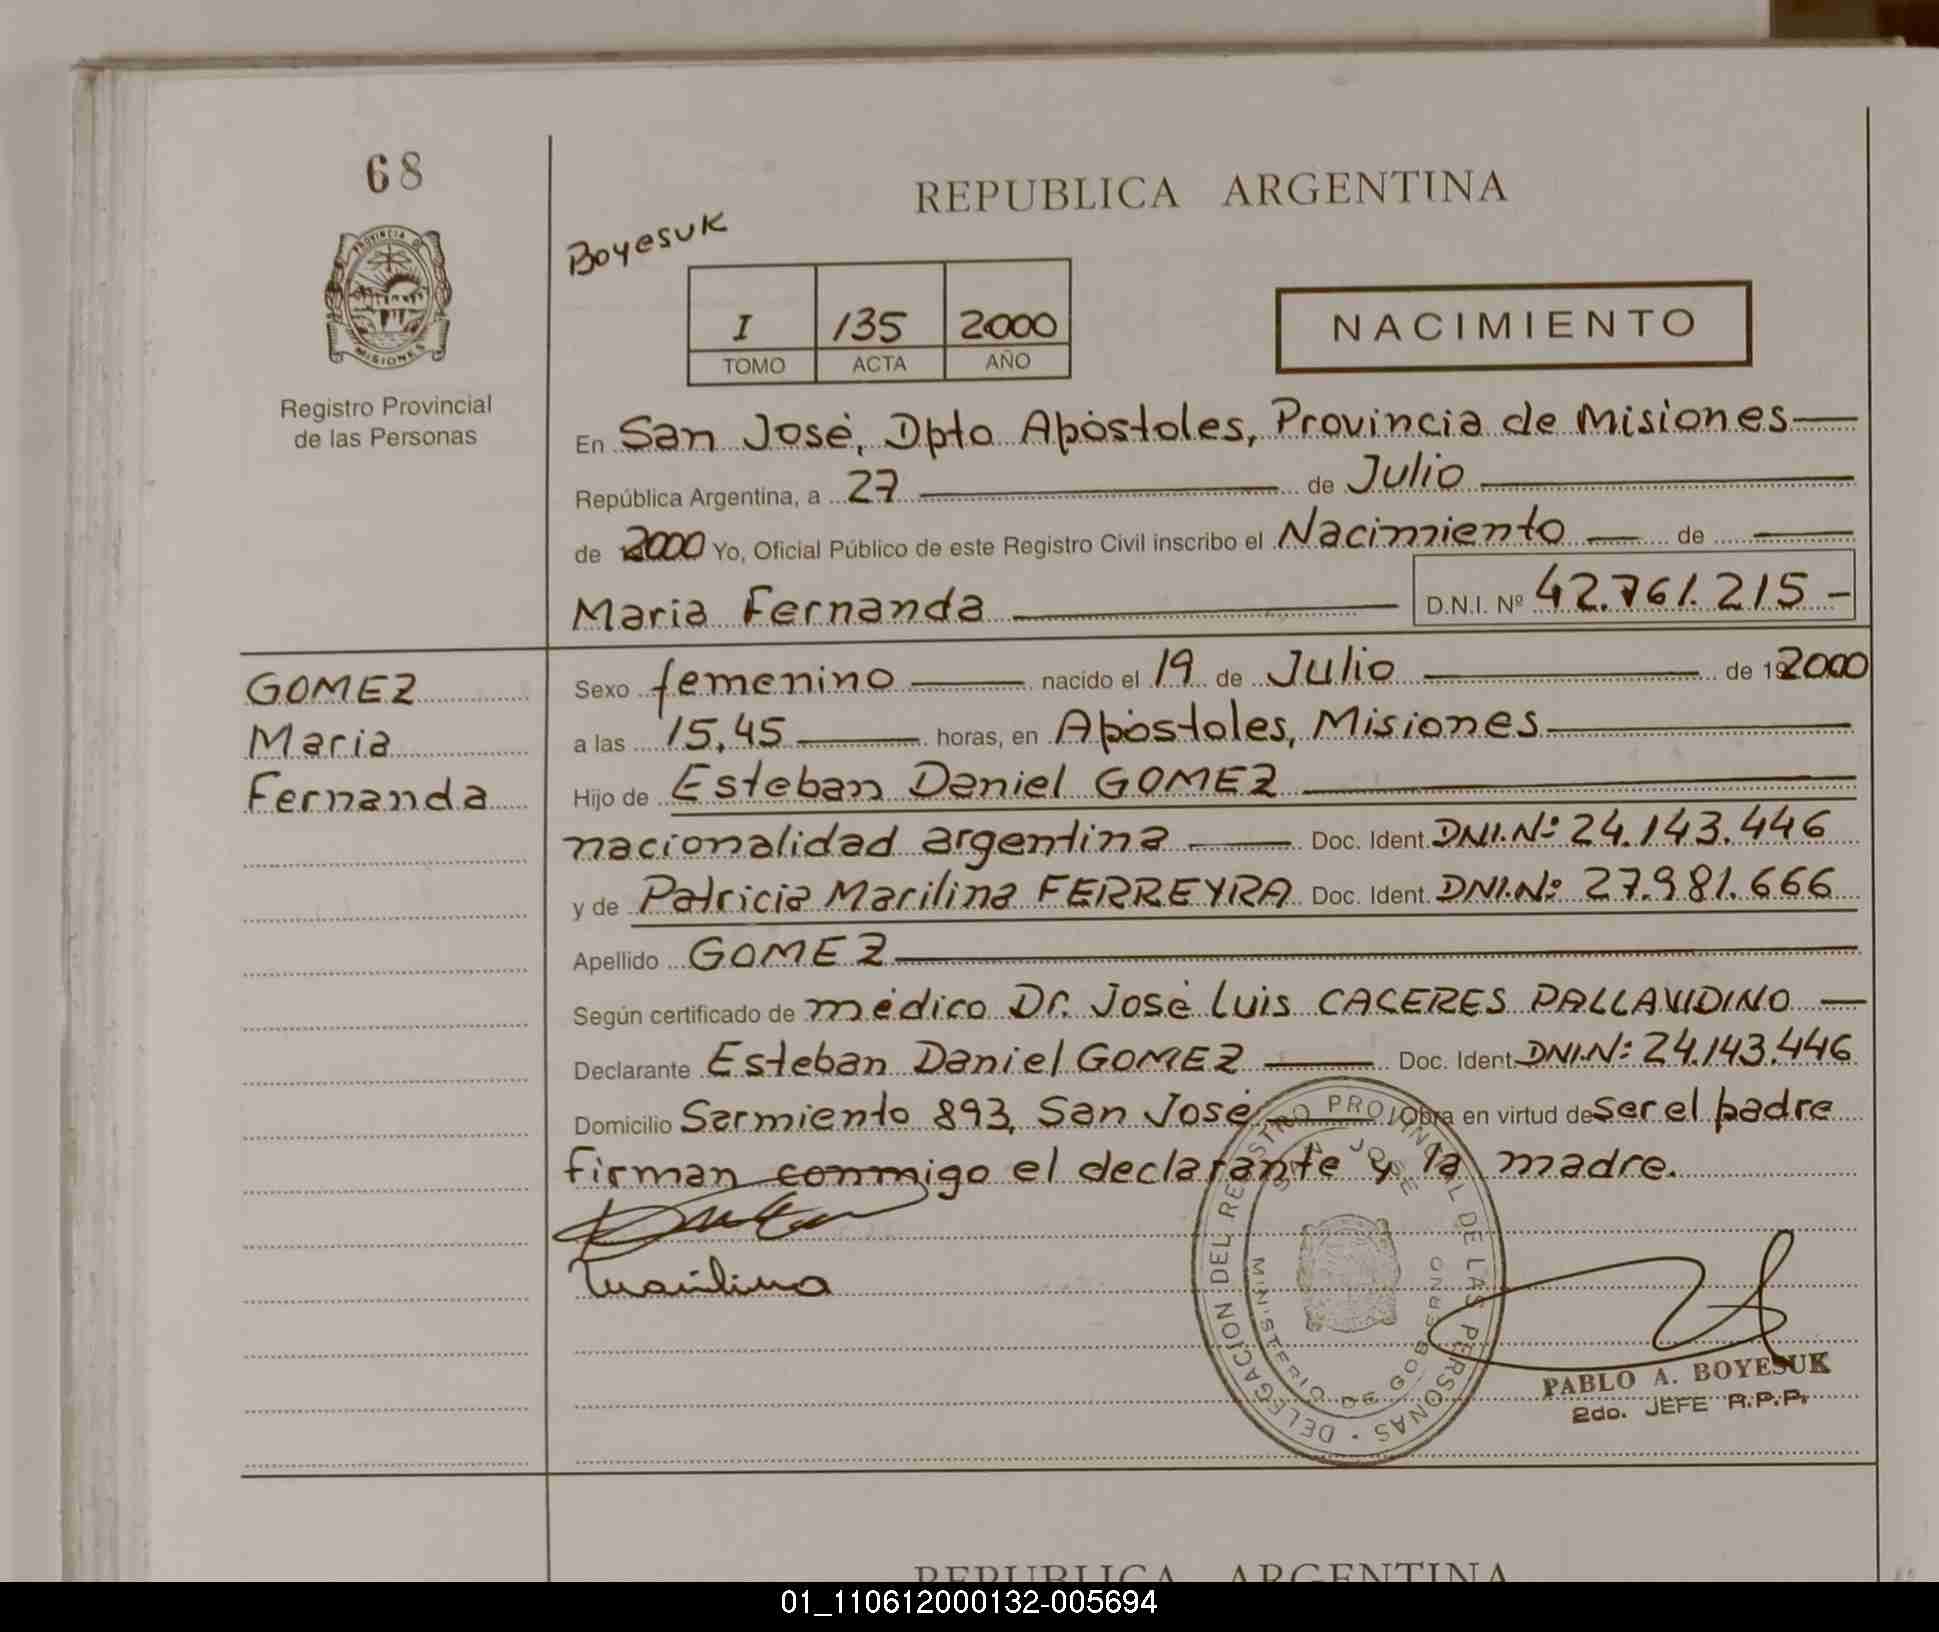 68
PROVINCIA DE
MISIONES
Registro Provincial
de las Personas
REPUBLICA ARGENTINA
Boyesuk
I 135 2000
TOMO ACTA AÑO
NACIMIENTO
En San José, Dpto Apóstoles, Provincia de Misiones
República Argentina, a 27 de Julio
de 2000 Yo, Oficial Público de este Registro Civil inscribo el Nacimiento de
Maria Fernanda D.N.I. Nº 42.761.215-
GOMEZ
Maria
Fernanda
Sexo femenino nacido el 19 de Julio de 192000
a las 15,45 horas, en Apóstoles, Misiones
Hijo de Esteban Daniel GOMEZ
nacionalidad argentina Doc. Ident. DNI.Nº: 24.143.446
y de Patricia Marilina FERREYRA Doc. Ident. DNI.Nº: 27.981.666
Apellido GOMEZ
Según certificado de médico Dr. José Luis CACERES PALLAVIDINO
Declarante Esteban Daniel GOMEZ Doc. Ident. DNI.Nº: 24.143.446
Domicilio Sarmiento 893, San José Obra en virtud de ser el padre
firman conmigo el declarante y la madre.
Marilina
DELEGACION DEL REGISTRO PROVINCIAL DE LAS PERSONAS
SAN JOSE
MINISTERIO DE GOBIERNO
PABLO A. BOYESUK
2do. JEFE R.P.P.
REPUBLICA ARGENTINA
01_110612000132-005694